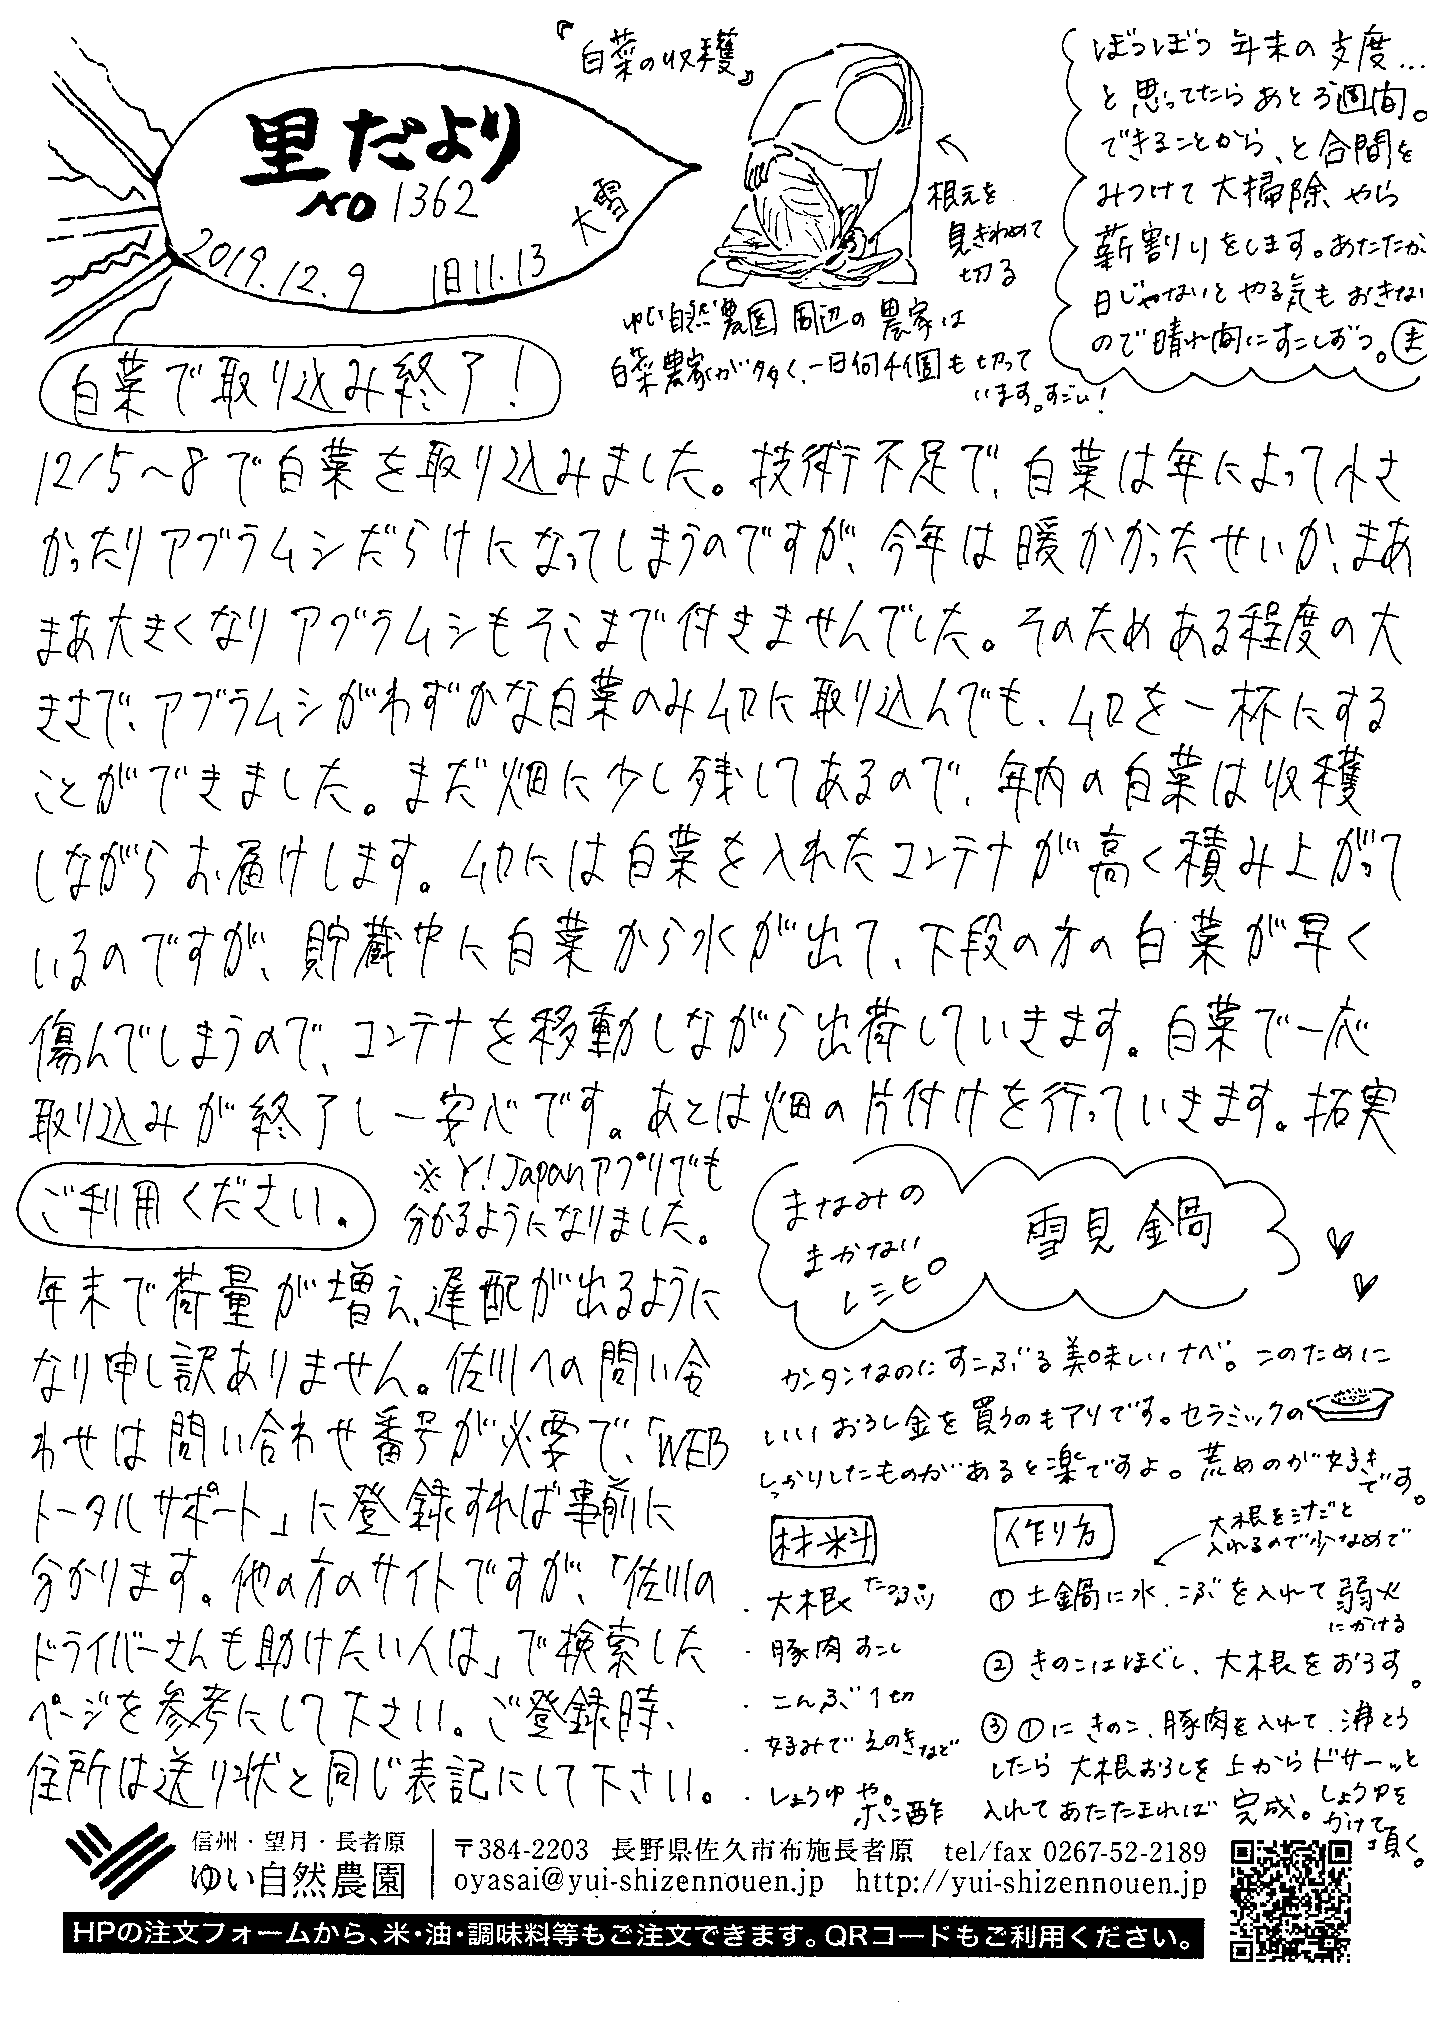 里だより
NO 1362
2019.12.9 旧11.13 大雪
『白菜の収穫』
根元を
見きわめて
切る
ゆい自然農園周辺の農家は
白菜農家が多く、一日何千個も切って
います。すごい!
ぼつぼつ年末の支度…
と思ってたらあと3週間。
できることから、と合間を
みつけて大掃除やら
薪割りをします。あたたか
日じゃないとやる気もおきない
ので晴れ間にすこしずつ。
白菜で取り込み終了!
12/5~8で白菜を取り込みました。技術不足で、白菜は年によって小さ
かったりアブラムシだらけになってしまうのですが、今年は暖かかったせいか、まあ
まあ大きくなりアブラムシもそこまで付きませんでした。そのためある程度の大
きさで、アブラムシがわずかな白菜のみムロに取り込んでも、ムロを一杯にする
ことができました。まだ畑に少し残してあるので、年内の白菜は収穫
しながらお届けします。ムロには白菜を入れたコンテナが高く積み上がって
いるのですが、貯蔵中に白菜から水が出て、下段の方の白菜が早く
傷んでしまうので、コンテナを移動しながら出荷していきます。白菜で一応
取り込みが終了し一安心です。あとは畑の片付けを行っていきます。拓実
ご利用ください。
※Y!Japanアプリでも
分かるようになりました。
年末で荷量が増え、遅配が出るように
なり申し訳ありません。佐川への問い合
わせは問い合わせ番号が必要で、「WEB
トータルサポート」に登録すれば事前に
分かります。他の方のサイトですが、「佐川の
ドライバーさんも助けたい人は」で検索した
ページを参考にして下さい。ご登録時、
住所は送り状と同じ表記にして下さい。
まなみの
まかない
レシピ
雪見鍋
カンタンなのにすこぶる美味しいナベ。このために
いいおろし金を買うのもアリです。セラミックの
しっかりしたものがあると楽ですよ。荒めのが好き
です。
材料
・大根 たっぷり
・豚肉 すこし
・こんぶ 1切
・好みでえのきなど
・しょうゆや
ポン酢
作り方
大根を汁ごと
入れるので少なめで
① 土鍋に水、こぶを入れて弱火
にかける
② きのこはほぐし、大根をおろす。
③ ①にきのこ、豚肉を入れて、沸とう
したら大根おろしを上からドサーッと
入れてあたたまれば完成。しょうゆを
かけて
頂く。
信州・望月・長者原
ゆい自然農園
〒384-2203 長野県佐久市布施長者原 tel/fax 0267-52-2189
oyasai@yui-shizennouen.jp http://yui-shizennouen.jp
HPの注文フォームから、米・油・調味料等もご注文できます。QRコードもご利用ください。